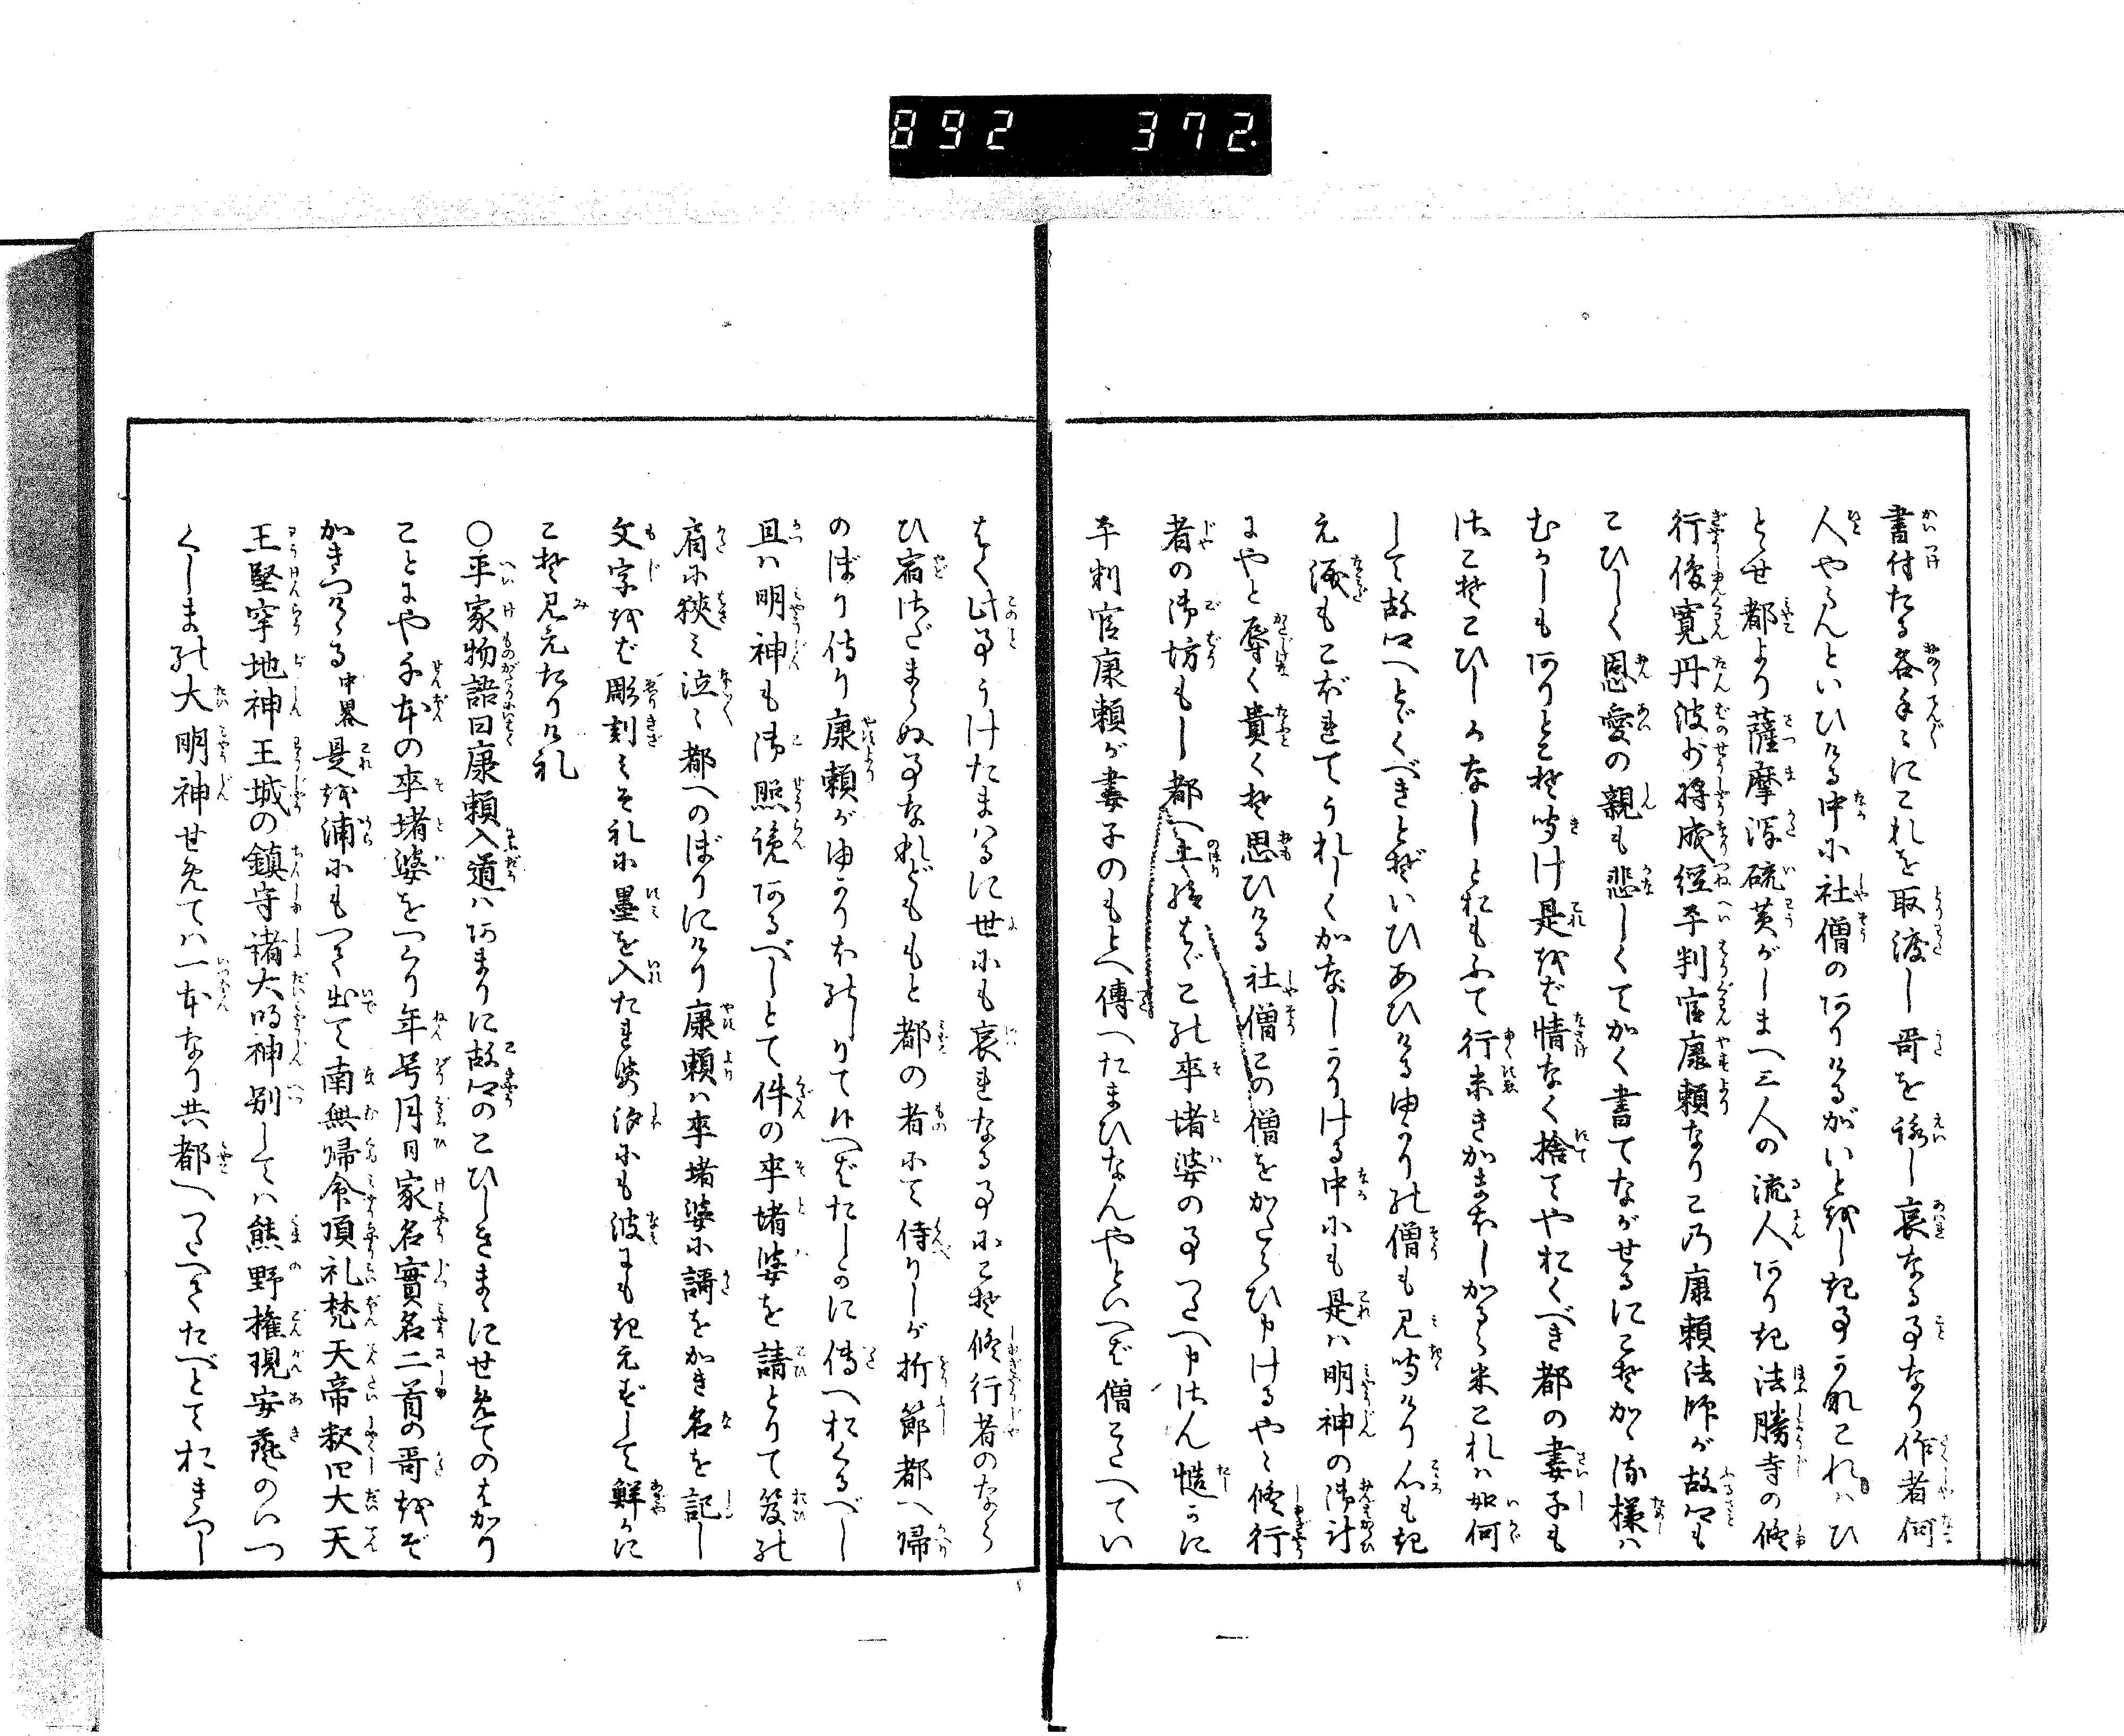 892 372.
書付たる各手々にこれを取渡し哥を詠し哀なる事なり作者何
人やらんといひける中に社僧のありけるがいとをし記事かなこれハひ
とせ都より薩摩潟硫黄がしまへ三人の流人あり記法勝寺の修
行俊寛丹波少将成経平判官康頼なりこの康頼法師が故郷も
こひしく恩愛の親も悲しくてかく書てながせるにこそかゝる様ハ
むかしも有りとこそ聞け是をば情なく捨てやおくべき都の妻子も
さこそこひしかなしとおもふて行末きかまほしかるらめこれハ如何
して故郷へとゞくべきとぞいひあひけるゆかりの僧も見聞けり心もき
え涙もこぼれてうれしくかなしかりける中にも是ハ明神の御計
にやと辱く貴くぞ思ひける社僧この僧をかたらひ申けるやゝ修行
者の御坊もし都へ上り給はゞこの卒堵婆の事つたへ申さん慥かに
平判官康頼が妻子のもとへ傳へたまひなんやといへば僧こたへてい
はく此事うけたまはるに世にも哀れなる事にこそ修行者のなら
ひ宿さだまらぬ事なれどももと都の者にて侍りしが折節都へ歸
のぼり侍り康頼がゆかりをしりて候へばたしかに傳へおくるべし
且ハ明神も御照覧あるべしとて件の卒堵婆を請とりて笈の
肩に狹み泣々都へのぼりにけり康頼ハ卒堵婆に謌をかき名を記し
文字をば彫刻みそれに墨を入たれば汐にも波にもきえずして鮮かに
こそ見えたりけれ
〇平家物語曰康頼入道ハあまりに故郷のこひしきまゝにせめてのはかり
ことにや千本の卒堵婆をつくり年号月日家名實名二首の哥をぞ
かきつける中畧是を浦にもつて出て南無歸命頂礼梵天帝釈四大天
王堅牢地神王城の鎮守諸大明神別しては熊野権現安藝のいつ
くしまの大明神せめてハ一本なり共都へつたへてたべとておきつし